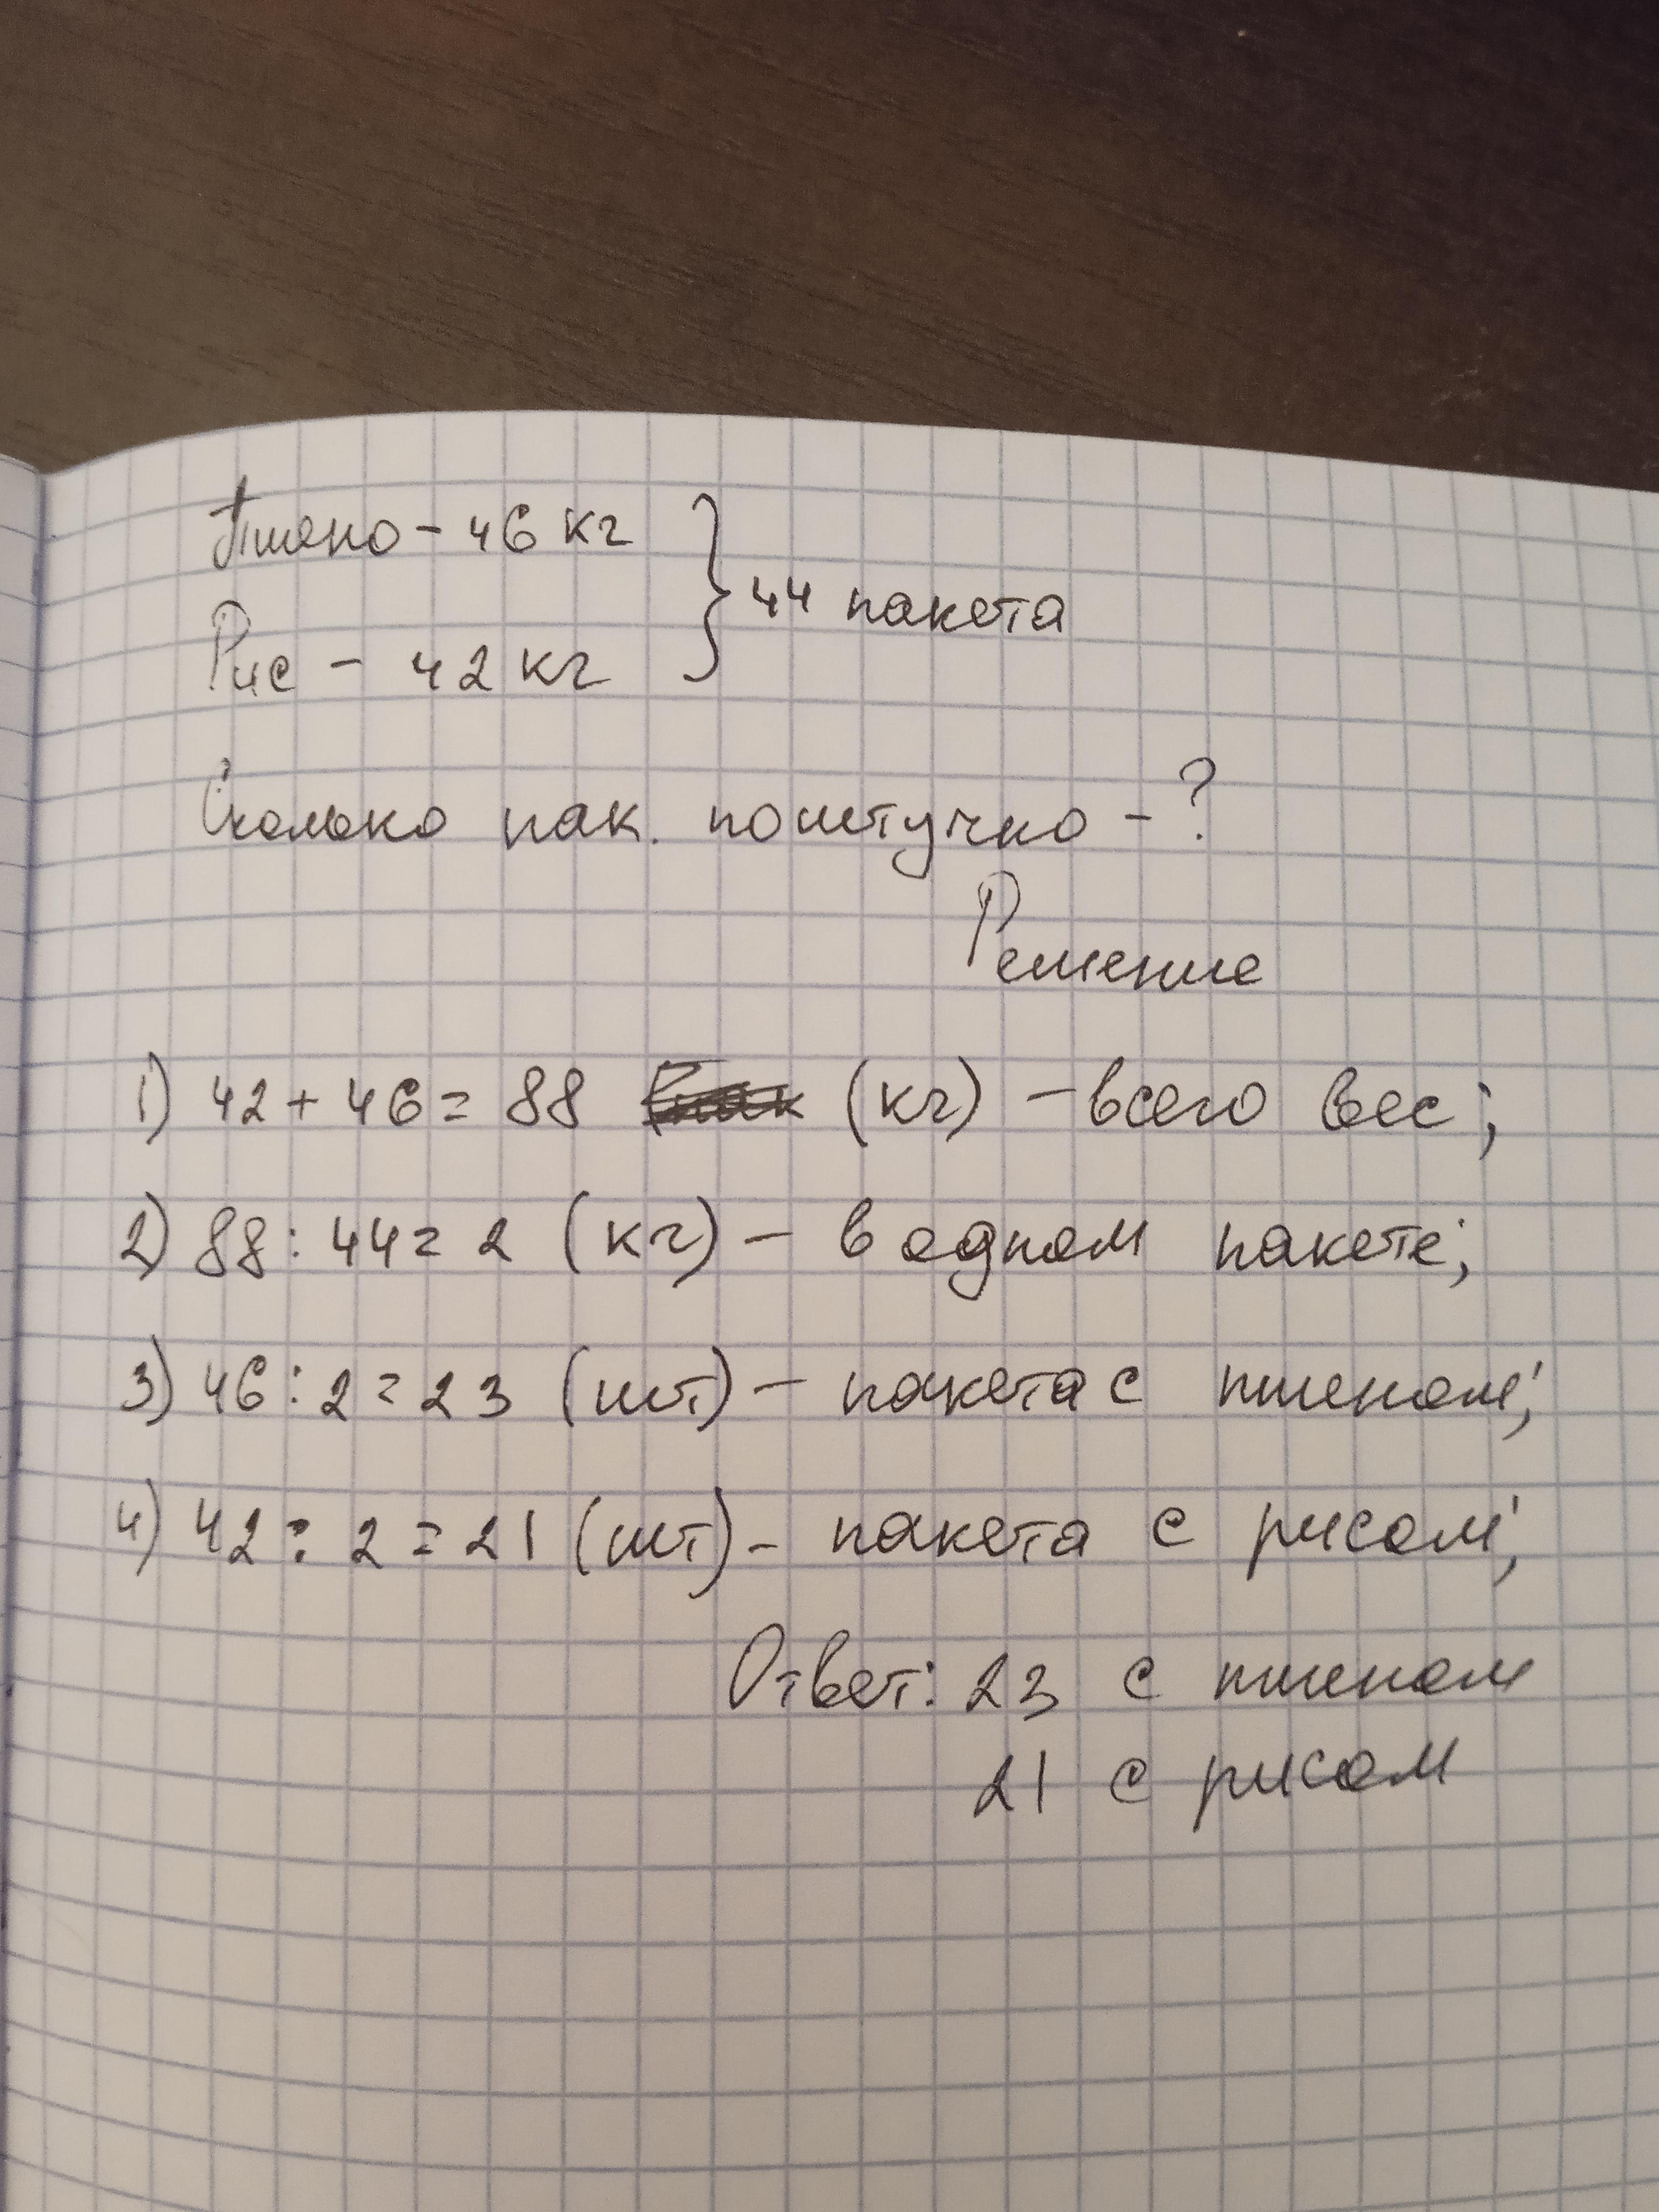 Пшено - 46 кг
Рис - 42 кг
} 44 пакета
Сколько пак. поштучно - ?
Решение
1) 42 + 46 = 88 (кг) - всего вес;
2) 88 : 44 = 2 (кг) - в одном пакете;
3) 46 : 2 = 23 (шт) - пакета с пшеном;
4) 42 : 2 = 21 (шт) - пакета с рисом;
Ответ: 23 с пшеном
21 с рисом